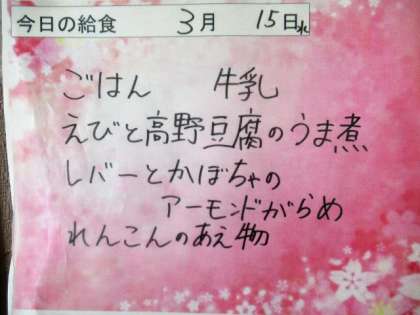 今日の給食 3月 15日水
ごはん 牛乳
えびと高野豆腐のうま煮
レバーとかぼちゃの
アーモンドがらめ
れんこんのあえ物